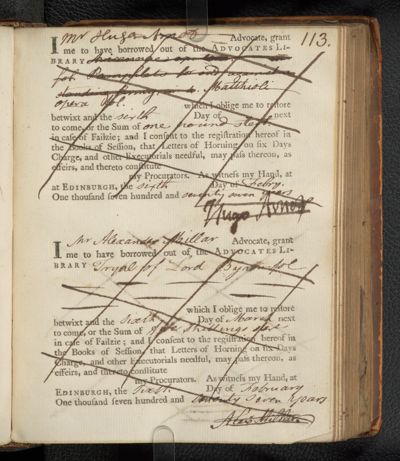 113.
I Mr Hugo Arnot Advocate, grant
me to have borrowed out of the ADVOCATES LI-
BRARY
fol. Pamphlets
Matthioli
opera fol. which I oblige me to restore
betwixt and the sixth Day of next
to come, or the Sum of one pound Ster
in case of Failzie; and I consent to the registration hereof in
the Books of Session, that Letters of Horning on six Days
Charge, and other Executorials needful, may pass thereon, as
effeirs, and thereto constitute
my Procurators. As witness my Hand, at
at EDINBURGH, the sixth Day of Febry.
One thousand seven hundred and seventy seven years
Hugo Arnot
I Mr Alexander Millar Advocate, grant
me to have borrowed out of the ADVOCATES LI-
BRARY Tryal of Lord Byron fol
which I oblige me to restore
betwixt and the sixth Day of March next
to come, or the Sum of five Shillings
in case of Failzie; and I consent to the registration hereof in
the Books of Session, that Letters of Horning on six Days
Charge, and other Executorials needful, may pass thereon, as
effeirs, and thereto constitute
my Procurators. As witness my Hand, at
EDINBURGH, the sixth Day of February
One thousand seven hundred and seventy Seven Years
Alexr Millar